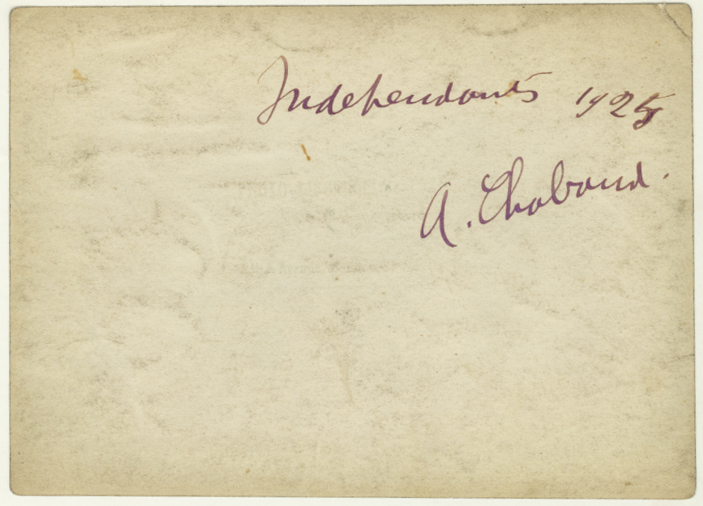 Independants 1925
A. Chabaud.